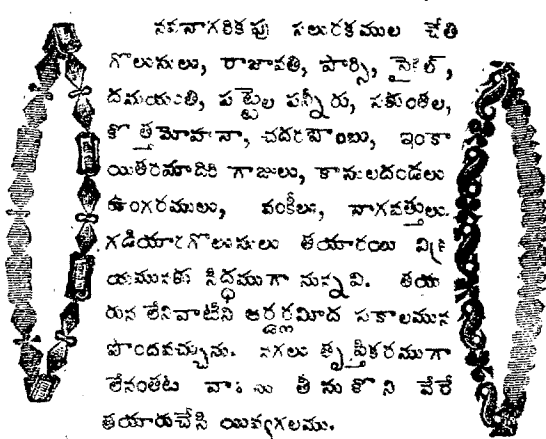 నవనాగరికపు పలురకముల చేతి
గొలుసులు, రాజావతి, పార్సి, సైకల్,
దమయంతి, పట్టెల పన్నీరు, సకుంతల,
కొత్తమోహనా, చదరపొంబు, ఇంకా
యితరమాదిరి గాజులు, కాసులదండలు
ఉంగరములు, వంకీలు, నాగవత్తులు.
గడియారగొలుసులు తయారయి విక్ర
యమునకు సిద్ధముగా నున్నవి. తయ
రున లేనివాటిని ఆర్డర్లమీద సకాలమున
పొందవచ్చును. నగలు తృప్తికరముగా
లేనంతట వాటిని తీసుకొని వేరే
తయారుచేసి యివ్వగలము.